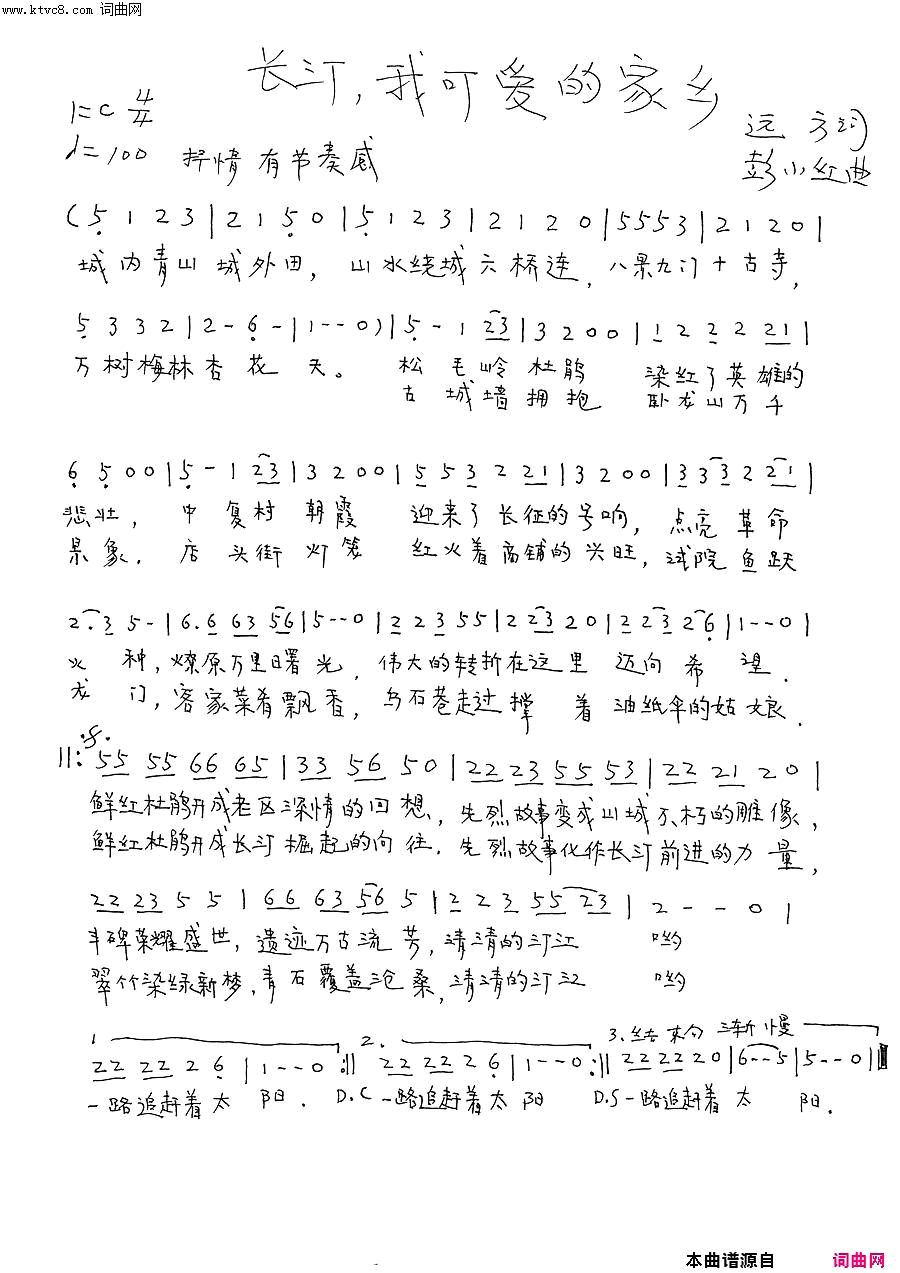 www.ktvc8.com 词曲网
长汀,我可爱的家乡
1=C 4/4
♩=100 抒情 有节奏感
远方词
彭小红曲
(5 1 2 3 | 2 1 5 0 | 5 1 2 3 | 2 1 2 0 | 5 5 5 3 | 2 1 2 0 |
城内青山城外田, 山水绕城六桥连, 八景九门十古寺,
5 3 3 2 | 2 - 6 - | 1 - - 0) | 5 - 1 23 | 3 2 0 0 | 1 2 2 2 21 |
万树梅林杏花天。 松毛岭杜鹃 染红了英雄的
古城墙拥抱 卧龙山万千
6 5 0 0 | 5 - 1 23 | 3 2 0 0 | 5 5 3 2 21 | 3 2 0 0 | 3 3 3 2 21 |
悲壮, 中复村朝霞 迎来了长征的号响, 点亮革命
景象. 店头街灯笼 红火着商铺的兴旺, 试院鱼跃
2. 3 5 - | 6. 6 63 56 | 5 - - 0 | 2 2 3 5 5 | 2 23 2 0 | 2 2 3 26 | 1 - - 0 |
火种, 燎原万里曙光, 伟大的转折在这里 迈向希望.
龙门, 客家菜肴飘香, 乌石巷走过撑着油纸伞的姑娘.
||: 55 55 66 65 | 33 56 50 | 22 23 55 53 | 22 21 2 0 |
鲜红杜鹃开成老区深情的回想, 先烈故事变成山城不朽的雕像,
鲜红杜鹃开成长汀崛起的向往. 先烈故事化作长汀前进的力量,
22 23 5 5 | 66 63 56 5 | 2 2 3 55 23 | 2 - - 0 |
丰碑荣耀盛世, 遗迹万古流芳, 清清的汀江 哟
翠竹染绿新梦, 青石覆盖沧桑, 清清的汀江 哟
1. 2. 3.结束句 渐慢
22 22 2 6 | 1 - - 0 :|| 22 22 2 6 | 1 - - 0 :|| 22 22 2 0 | 6 - - 5 | 5 - - 0 ||
一路追赶着太阳. D.C 一路追赶着太阳 D.S 一路追赶着太阳.
本曲谱源自 词曲网